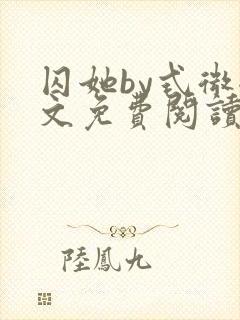 囚她by式微
文免費閱讀
陸鳳九